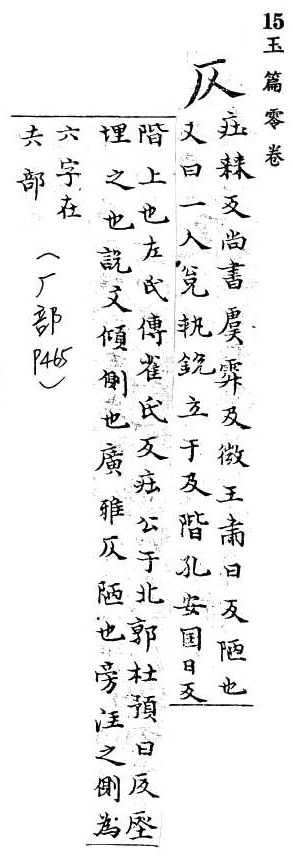 15 玉篇零卷
仄
疘棘反尚書虞舜仄微王肅曰仄陋也
又曰一人冕執銳立于仄階孔安国曰仄
階上也左氏傳崔氏仄疘公于北郭杜預曰仄壓
埋之也説文傾側也廣雅仄陋也旁汪之側為
六字在
部
(厂部 P465)